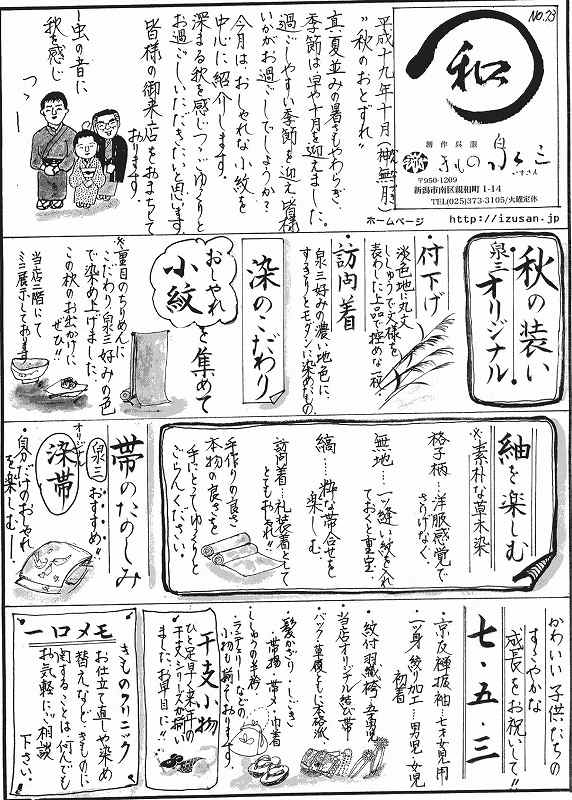 NO.23
和
創作呉服
きもの泉三
いずさん
〒950-1209
新潟市南区親和町1-14
TEL(025)373-3105/火曜定休
ホームページ http://izusan.jp
平成十九年十月(神無月)
"秋のおとずれ"
真夏並みの暑さもやわらぎ、
季節は早や十月を迎えました。
過ごしやすい季節を迎え皆様
いかがお過ごしでしょうか?
今月は、おしゃれな小紋を
中心に紹介します。
深まる秋を感じつつ、ゆっくりと
お過ごしいただきたいと思います。
皆様の御来店をおまちして
おります。
虫の音に
秋を感じ
つゝ
秋の装い
泉三オリジナル
付下げ
淡色地に丸文
ししゅうで文様を
表わした上品で控めな一枚
訪問着
泉三好みの濃い地色に、
すっきりとモダンに染めたもの
染のこだわり
おしゃれ
小紋
を集めて
※重目のちりめんに
こだわり泉三好みの色
で染め上げました。
この秋のお出かけに
ぜひ!!
当店二階にて
ミニ展示しております
紬を楽しむ
※素朴な草木染
格子柄…洋服感覚で
さりげなく。
無地…一ツ縫い紋を入れ
ておくと重宝。
縞…粋な帯合せを
楽しむ。
訪問着…礼装着として
とてもおしゃれ!!
手作りの良さ
本物の良さを
手にとってゆっくりと
ごらんください。
帯のたのしみ
泉三
おすすめ!!
オリジナル
染帯
・自分だけのおしゃれ
を楽しむー!
かわいい子供たちの
すこやかな
成長をお祝いして!!
七・五・三
・京友禅振袖…七才女児用
・一ツ身絞り加工…男児・女児
初着
・紋付羽織袴 五才男児
・当店オリジナル結び帯
・バック・草履ともに本格派
・髪かざり・しごき
帯揚 帯〆 巾着
ししゅう半衿
・ランジェリーなどの
小物も揃ております。
干支小物
ひと足早く来年の
干支シリーズが揃い
ました。お早目に!!
一口メモ
きものクリニック
お仕立て直しや染め
替えなど、きものに
関することは何んでも
お気軽にご相談
下さい。